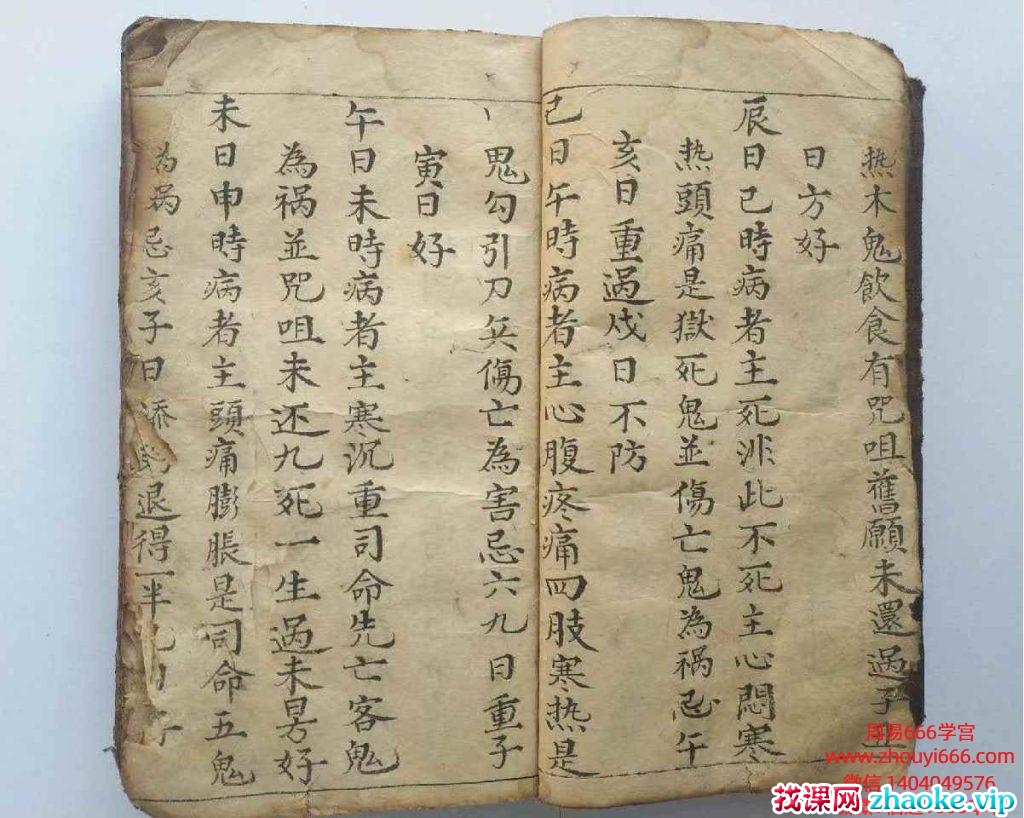 热木鬼飲食有咒咀舊願未還過子丑
日方好
辰日己時病者主死非此不死主心悶寒
热頭痛是獄死鬼並傷亡鬼為祸忌午
亥日重過戌日不防
己日午時病者主心腹疼痛四肢寒热是
鬼勾引刀兵傷亡為害忌六九日重子
寅日好
午日未時病者主寒沉重司命先亡客鬼
為祸並咒咀未还九死一生過未日方好
未日申時病者主頭痛膨脹是司命五鬼
為祸忌亥子日添退得一半
周易666学宫
www.zhouyi666.com
微信 1404049576
找课网 zhaoke.vip